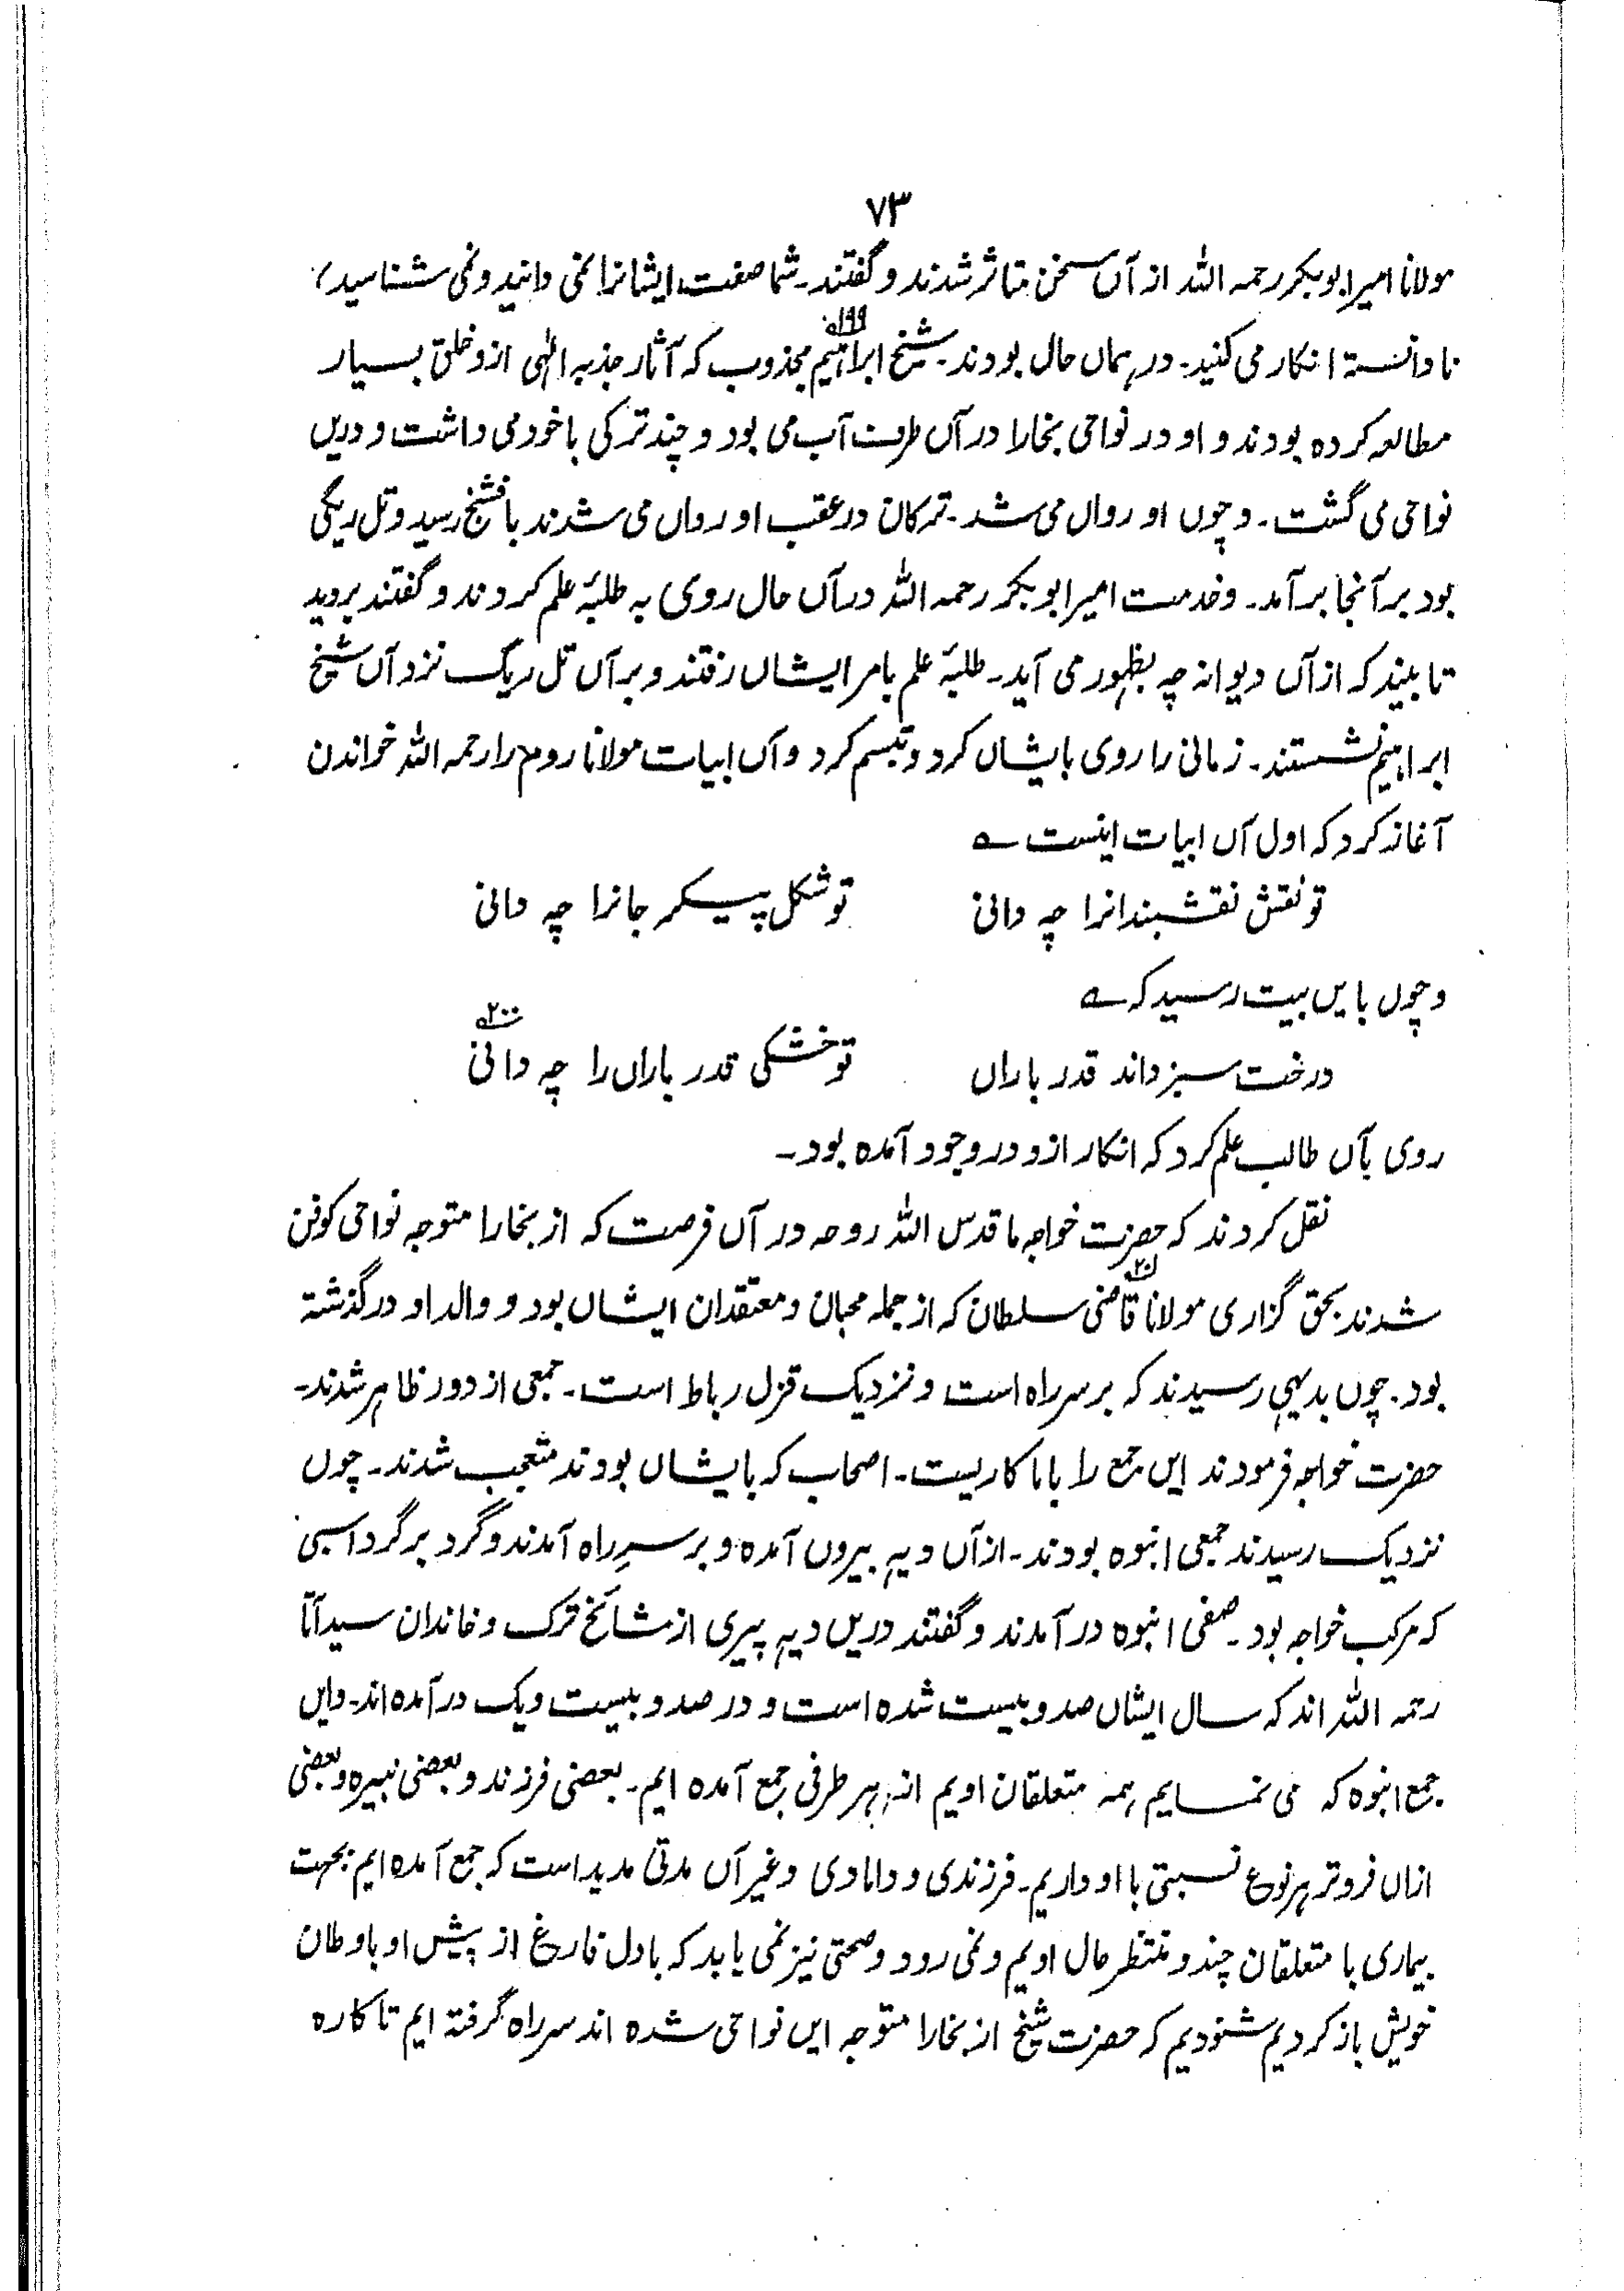 ۷۳
مولانا امیر ابوبکر رحمہ اللہ از آں سخن متاثر شدند و گفتند۔ شما صفت ایشانرا نمی دانید و نمی شناسید،
نا دانستۃ انکار می کنید۔ در ہماں حال بودند۔ شیخ ابراہیم۱۹۹ مجذوب کہ آثار جذبہ الٰہی ازو خلق بسیار
مطالعہ کردہ بودند و او در نواحی بخارا در آں طرف آب می بود و چند ترکی با خود می داشت و دریں
نواحی می گشت۔ و چوں او رواں می شد۔ ترکان در عقب او رواں می شدند با فشنج رسید و تل ریگی
بود بر آنجا بر آمد۔ و خدمت امیر ابوبکر رحمہ اللہ در آں حال روی بہ طلبۂ علم کردند و گفتند بروید
تا بیند کہ از آں دیوانہ چہ بظہور می آید۔ طلبۂ علم بامر ایشاں رفتند و بر آں تل ریگ نزد آں شیخ
ابراہیم نشستند۔ زمانی را روی بایشاں کرد و تبسم کرد و آں ابیات مولانا روم را رحمہ اللہ خواندن
آغاز کرد کہ اول آں ابیات اینست ؎
تو نقش نقشبندانرا چہ دانی تو شکل پیکر جانرا چہ دانی
و چوں بایں بیت رسید کہ ؎
درخت سبز داند قدر باراں تو خشکی قدر باراں را چہ دانی۲۰۰
روی بآں طالب علم کرد کہ انکار ازو در وجود آمدہ بود۔
نقل کردند کہ حضرت خواجہ ما قدس اللہ روحہ در آں فرصت کہ از بخارا متوجہ نواحی کوفن
شدند بحق گزاری مولانا قاضی۲۰۱ سلطان کہ از جملہ محبان و معتقدان ایشاں بود و والد او در گذشتۃ
بود۔ چوں بدیہی رسیدند کہ بر سر راہ است و نزدیک قزل رباط است۔ جمعی از دور ظاہر شدند۔
حضرت خواجہ فرمودند ایں جمع را باما کاریست۔ اصحاب کہ بایشاں بودند متعجب شدند۔ چوں
نزدیک رسیدند جمعی انبوہ بودند۔ از آں دیہ بیروں آمدہ و بر سرِ راہ آمدند و گرد بر گرد اسبی
کہ مرکب خواجہ بود۔ صفی انبوہ در آمدند و گفتند دریں دیہ پیری از مشائخ ترک و خاندان سید آتا
رحمہ اللہ اند کہ سال ایشاں صد و بیست شدہ است و در صد و بیست و یک در آمدہ اند۔ و ایں
جمع انبوہ کہ می نمایم ہمہ متعلقان اویم از ہر طرفی جمع آمدہ ایم۔ بعضی فرزند و بعضی نبیرہ و بعضی
ازاں فروتر ہر نوع نسبتی با او داریم۔ فرزندی و دامادی و غیر آں مدتی مدید است کہ جمع آمدہ ایم بجہت
بیماری با متعلقان چند و منتظر حال اویم و نمی رود و صحتی نیز نمی یابد کہ بادل فارغ از پیش او باوطان
خویش باز کردیم شنودیم کہ حضرت شیخ از بخارا متوجہ ایں نواحی شدہ اند سر راہ گرفتہ ایم تا کارہ